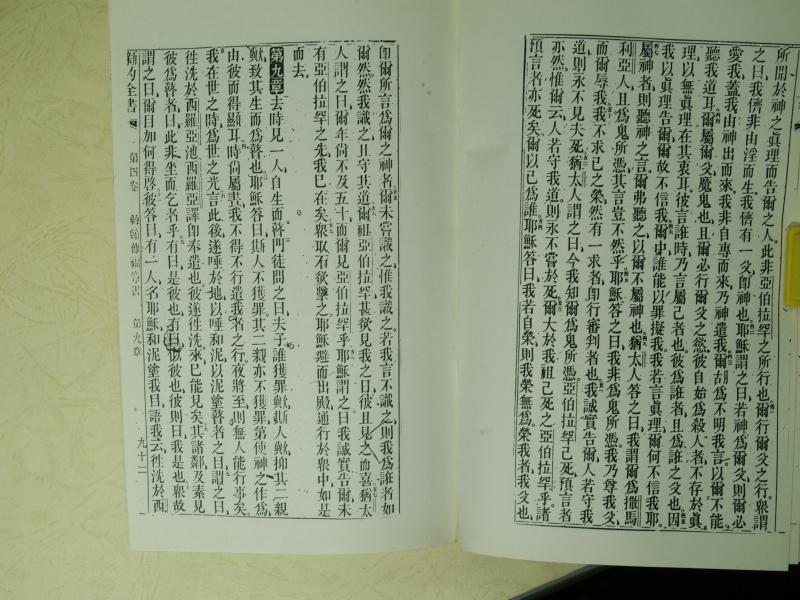 所聞於神之眞理而告爾之人此非亞伯拉罕之所行也爾行爾父之行衆謂
之曰我儕非由淫而生我儕有一父卽神也耶穌謂之曰若神爲爾父則爾必
愛我蓋我由神出而來我非自專而來乃神遣我爾胡爲不明我言以爾不能
聽我道耳爾屬爾父魔鬼也且爾必行爾父之慾彼自始爲殺人者不存於眞
理以無眞理在其衷耳彼言誰時乃言屬己者也彼爲誰者且爲誰之父也因
我以眞理告爾爾故不信我爾中誰能以罪擬我我若言眞理爾何不信我耶
屬神者則聽神之言爾弗聽之以爾不屬神也猶太人答之曰我謂爾爲撒馬
利亞人且爲鬼所憑其言豈不然乎耶穌答曰我非爲鬼所憑我乃尊我父
而爾辱我我不求己之榮然有一求者卽行審判者也我誠實告爾人若守我
道則永不見夫死猶太人謂之曰今我知爾爲鬼所憑亞伯拉罕已死預言者
亦然惟爾云人若守我道則永不嘗於死爾大於我祖已死之亞伯拉罕乎諸
預言者亦死矣爾以己爲誰耶穌答曰我若自榮則我榮無爲榮我者我父也
卽爾所言爲爾之神者爾未嘗識之惟我識之若我言不識之則我爲誰者如
爾然然我識之且守其道爾祖亞伯拉罕甚欲見我之日彼且見之而喜猶太
人謂之曰爾年尙不及五十而爾見亞伯拉罕乎耶穌謂之曰我誠實告爾未
有亞伯拉罕之先我已在矣衆取石欲擊之耶穌避而出殿通行於衆中如是
而去
第九章去時見一人自生而瞽門徒問之曰夫子誰獲罪歟斯人歟抑其二親
歟致其生而爲瞽也耶穌答曰斯人不獲罪其二親亦不獲罪第使神之作爲
由彼而得顯耳時尙屬晝我不得不行遣我者之行夜將至則無人能行事矣
我在世之時爲世之光言此後遂唾於地以唾和泥以泥塗瞽者之目謂之曰
往洗於西羅亞池西羅亞譯卽奉遣也彼遂往洗來已能見矣其諸鄰及素見
彼爲瞽者曰此非坐而乞者乎有曰是彼也有曰似彼也彼則曰我是也衆故
謂之曰爾目如何得啓彼答曰有一人名耶穌和泥塗我目語我云往洗於
新約全書 第四卷 約翰傳福音書 第九章 九十二